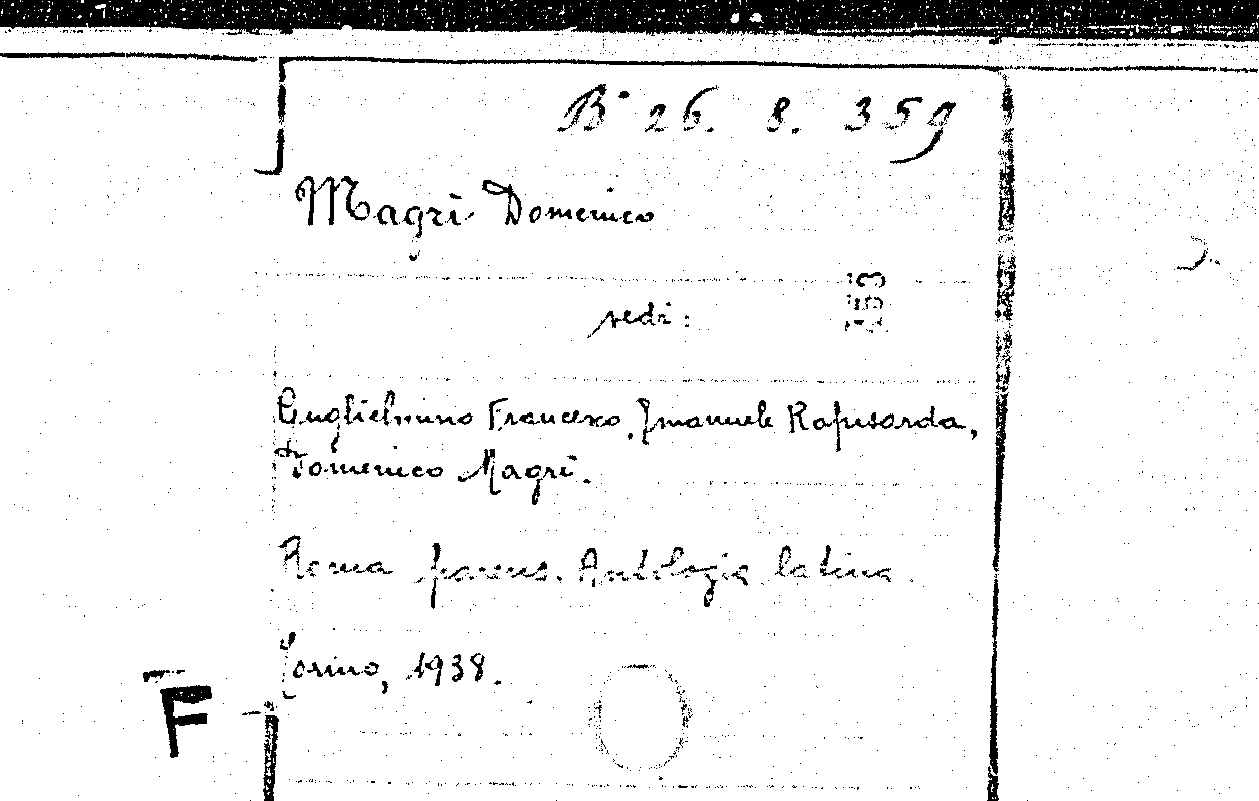 B° 26. 8. 359
Magrì Domenico
vedi:
Guglielmino Francesco, Emanuele Rapisarda,
Domenico Magrì.
Roma parens. Antologia latina.
Torino, 1938.
F